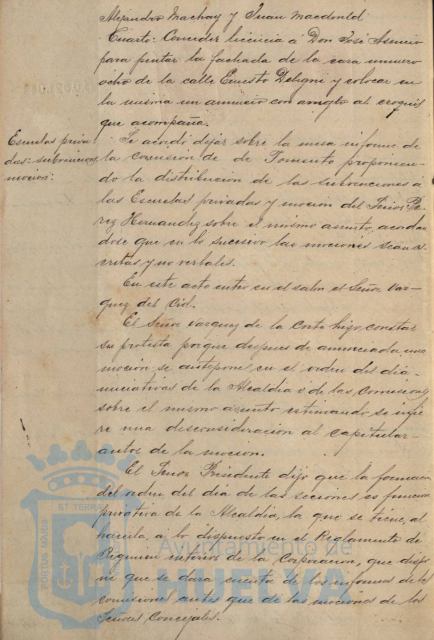 Alejandro Mackay y Juan Macdonald.
Cuarto: Conceder licencia á Don José Asensio
para pintar la fachada de la casa número
ocho de la calle Ernesto Deligni y colocar en
la misma un anuncio con arreglo al croquis
que acompaña.
Escuelas priva
das: subvenciones
mocion:
Se acordó dejar sobre la mesa informe de
la comisión de Fomento proponien-
do la distribución de las subvenciones á
las Escuelas privadas y moción del Señor Pe-
rez Hernandez sobre el mismo asunto, acordan
dose que en lo sucesivo las mociones sean es
critas y no verbales.
En este acto entro en el salon el Señor Vaz-
quez del Cid.
El Señor Vazquez de la Corte hizo constar
su protesta porque despues de anunciada una
moción se antepone en el orden del dia
iniciativas de la Alcaldia ó de las Comisiones
sobre el mismo asunto estimando se infie
re una desconsideración al capitular
autor de la mocion.
El Señor Presidente dijo que la formacion
del orden del dia de las sesiones es funcion
privativa de la Alcaldia, la que se tiene, al
hacerla, a lo dispuesto en el Reglamento de
Regimen interior de la Corporacion, que dispo
ne que se dara cuenta de los informes de las
comisiones antes que de las mociones de los
Señores Concejales.
PORTUS MARIS
ET TERRÆ
Ayuntamiento de
HUELVA